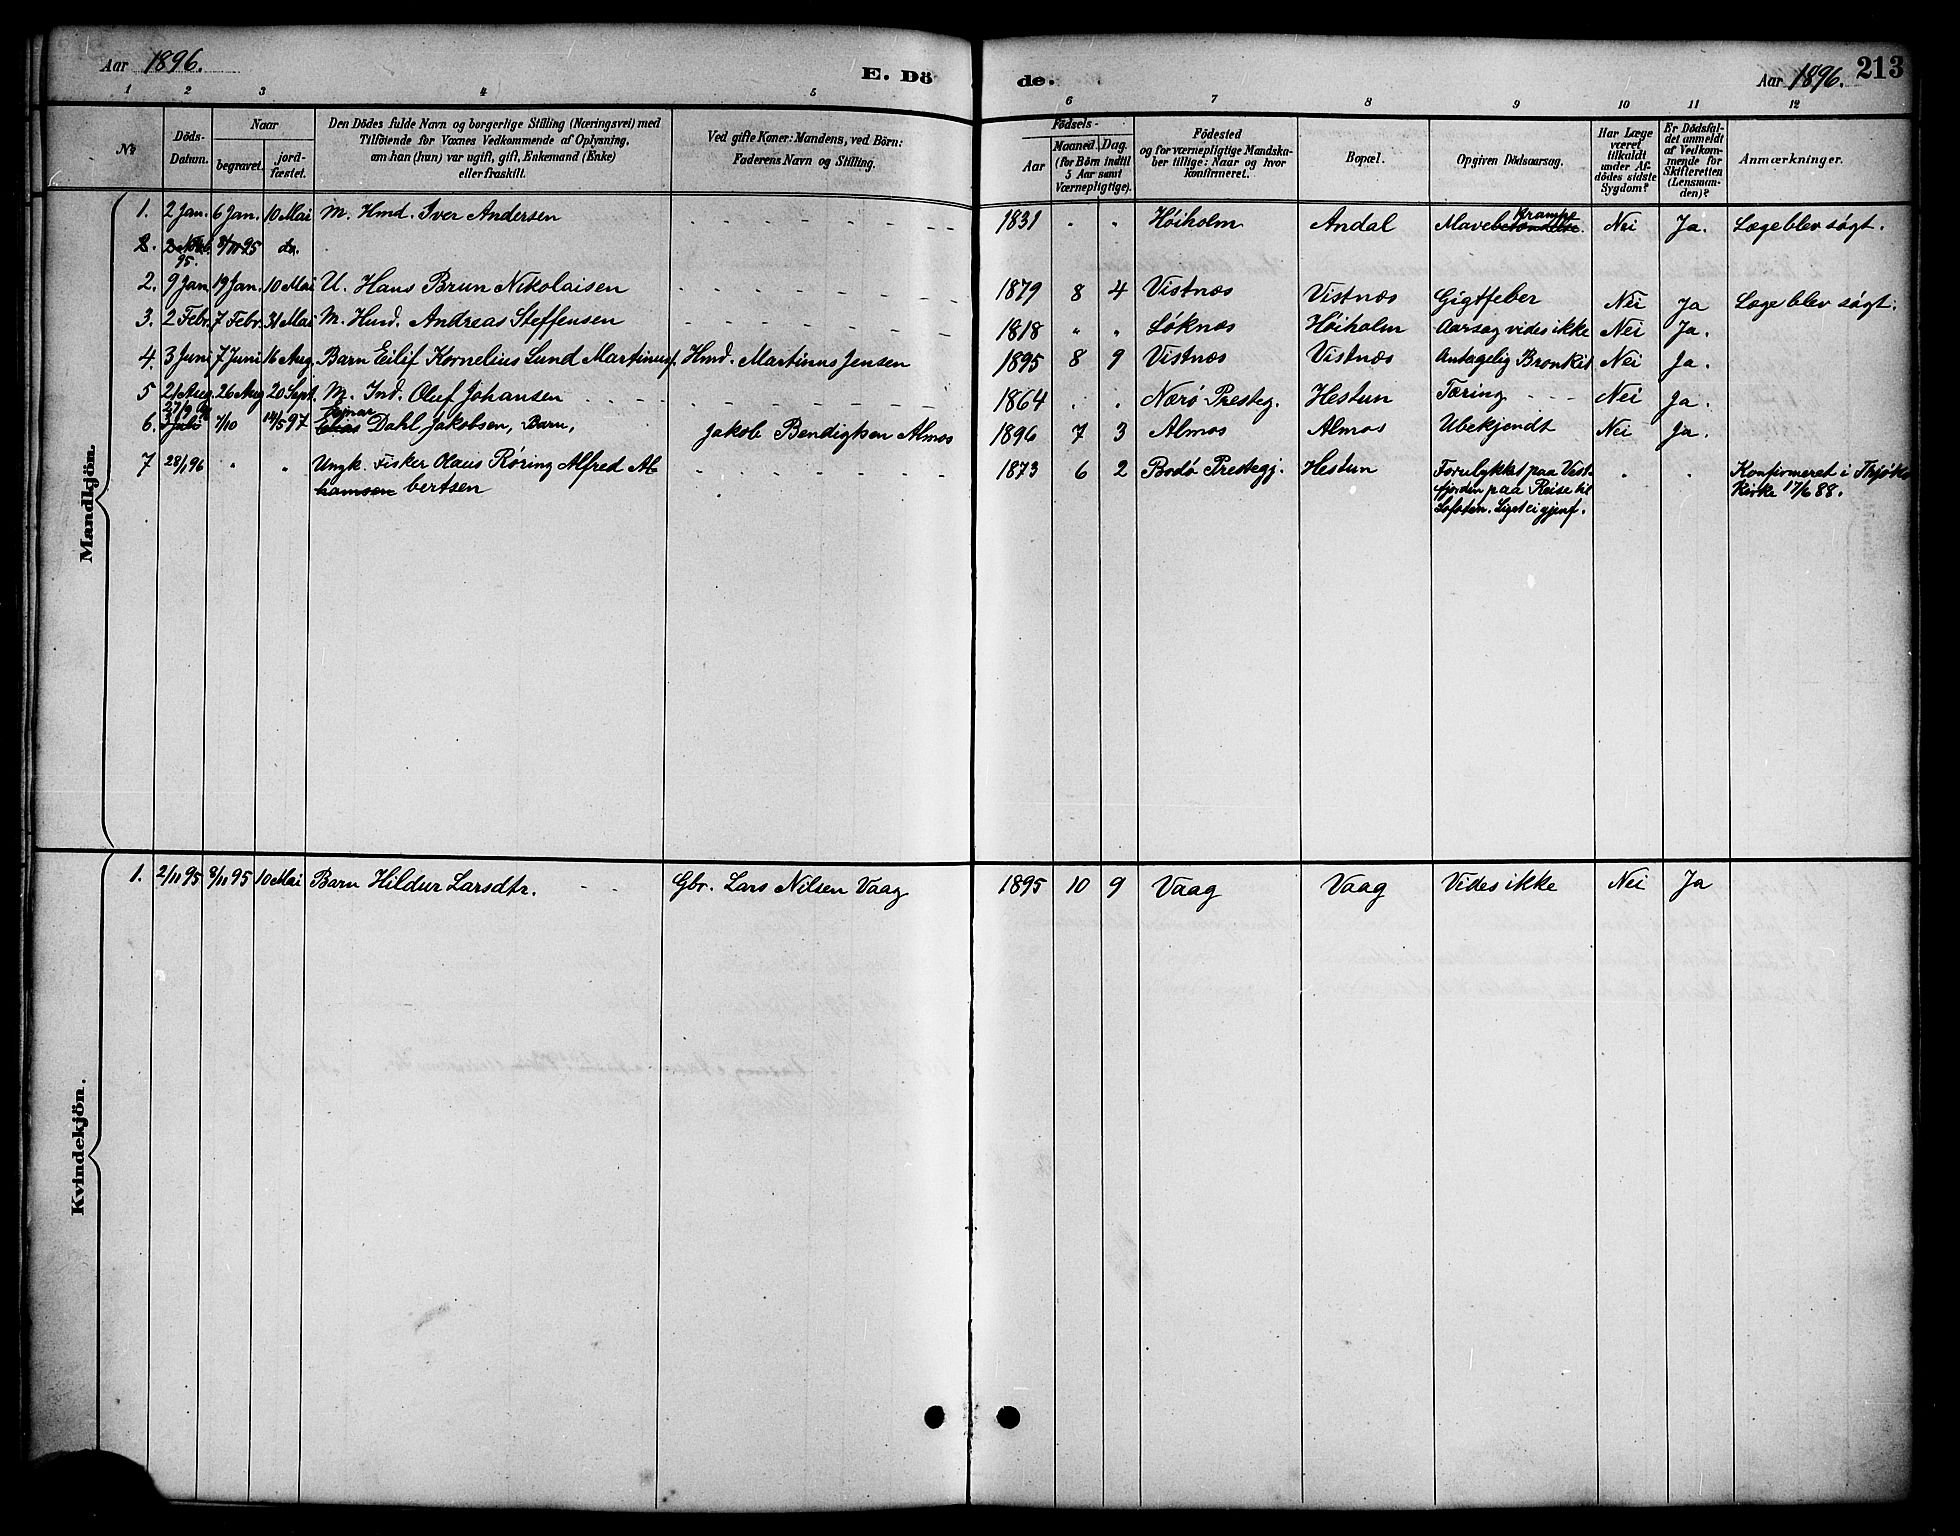 Aar 1896.
E. Dö
de.
Aar 1896.
213
1 2 3 4 5 6 7 8 9 10 11 12
№
Döds-Datum.
Naar
begravet.
jordfæstet.
Den Dödes fulde Navn og borgerlige Stilling (Næringsvei) med
Tilföiende for Voxnes Vedkommende af Oplysning,
om han (hun) var ugift, gift, Enkemand (Enke)
eller fraskilt.
Ved gifte Koner: Mandens, ved Börn:
Faderens Navn og Stilling.
Födsels-
Aar
Maaned. Dag.
(for Börn indtil
5 Aar samt
Værnepligtige).
Födested
og for værnepligtige Mandskaber tillige: Naar og hvor
konfirmeret.
Bopæl.
Opgiven Dödsaarsag.
Har Læge
været
tilkaldt
under Afdödes sidste
Sygdom?
Er Dödsfaldet anmeldt
af Vedkommende for
Skifteretten
(Lensmanden)?
Anmærkninger.
Mandkjön.
1. 2 Jan. 6 Jan. 10 Mai M. Hmd. Iver Andersen 1831 " " Høiholm Andal Mavebetændelse Krampe Nei Ja. Læge blev søgt.
2. 95. 8/11 95 do.
2. 9 Jan. 19 Jan. 10 Mai U. Hans Brun Nikolaisen 1879 8 4 Vistnæs Vistnæs Gigtfeber Nei Ja Læge blev søgt.
3. 2 Febr. 7 Febr. 31 Mai M. Hmd. Andreas Steffensen 1818 " " Løknæs Høiholm Aarsag vides ikke Nei Ja.
4. 3 Juni 7 Juni 16 Aug. Barn Eilif Kornelius Lund Martinus. Hmd. Martinus Jensen 1895 8 9 Vistnæs Vistnæs Antagelig Bronkit Nei Ja.
5 21 Aug. 26 Aug 20 Sept. M. Ind. Oluf Johansen 1864 " " Nærø Presteg. Hestun Tæring Nei Ja.
6. 27/9 3 Juli 7/10 14/5 97 Elias Ejnar Dahl Jakobsen, Barn, Jakob Bendigtsen Almos 1896 7 3 Almos Almos Ubekjendt Nei Ja.
7 28/1 96 " " Ungk. Fisker Olaus Røring Alfred Ab
hamsen bertsen 1873 6 2 Bodø Prestegj. Hestun Forulykket paa Vest
fjorden paa Reise til
Lofoten. Liget ei gjenf. " " Konfirmeret i Thjøtta
Kirke 17/6 88.
Kvindekjön.
1. 2/11 95 8/11 95 10 Mai Barn Hildur Larsdtr. Gbr. Lars Nilsen Vaag 1895 10 9 Vaag Vaag Vides ikke Nei Ja